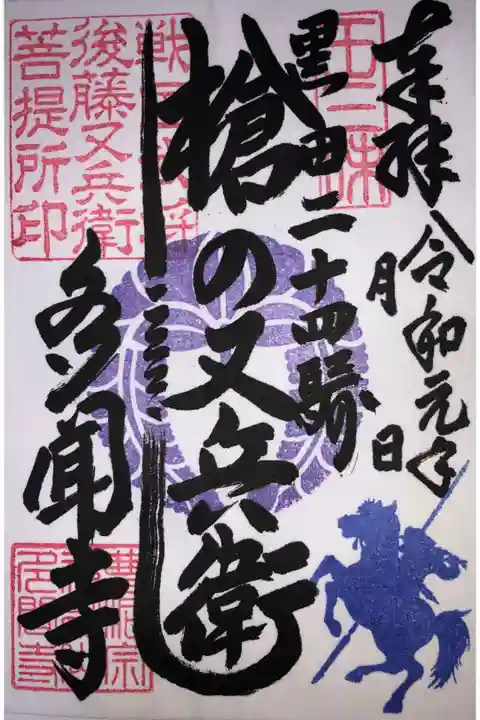 奉拝
令和元年
八月 日
黒田二十四騎
槍の又兵衛
多聞寺
戦国武将
後藤又兵衛
菩提所印